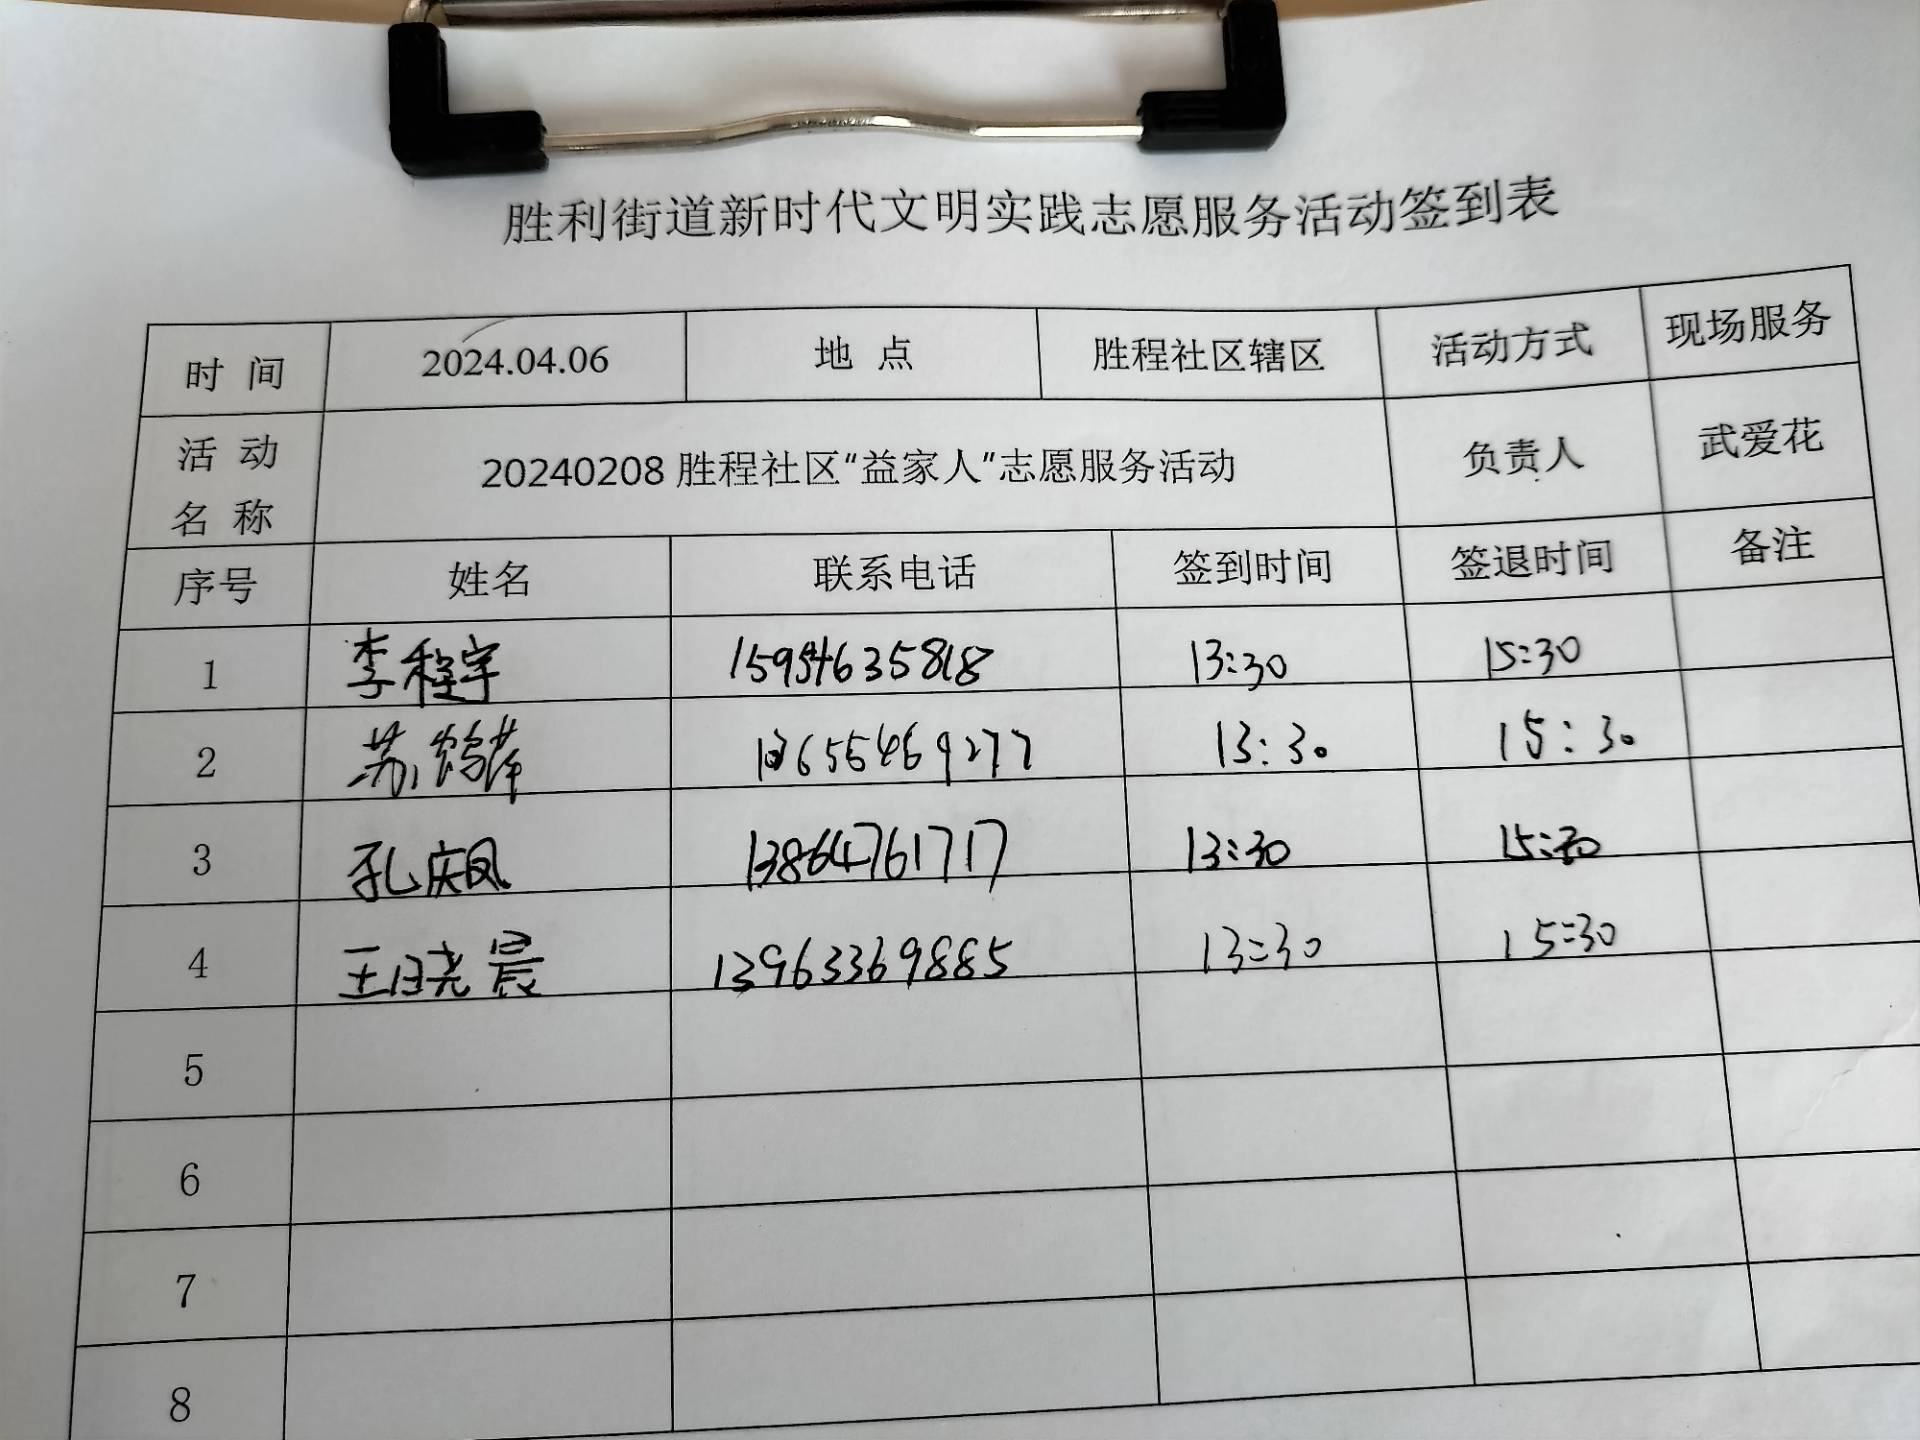 胜利街道新时代文明实践志愿服务活动签到表
时 间 2024.04.06 地 点 胜程社区辖区 活动方式 现场服务
活 动 名 称 20240208 胜程社区“益家人”志愿服务活动 负责人 武爱花
序号 姓名 联系电话 签到时间 签退时间 备注
1 李程宇 15954635818 13:30 15:30
2 苏鹤萍 13655469277 13:30 15:30
3 孔庆凤 13864761717 13:30 15:30
4 王晓晨 13963369885 13:30 15:30
5
6
7
8